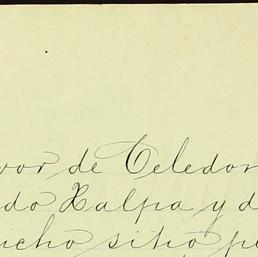 vor de Celedon
do Xalpa y d
icho sitio pe